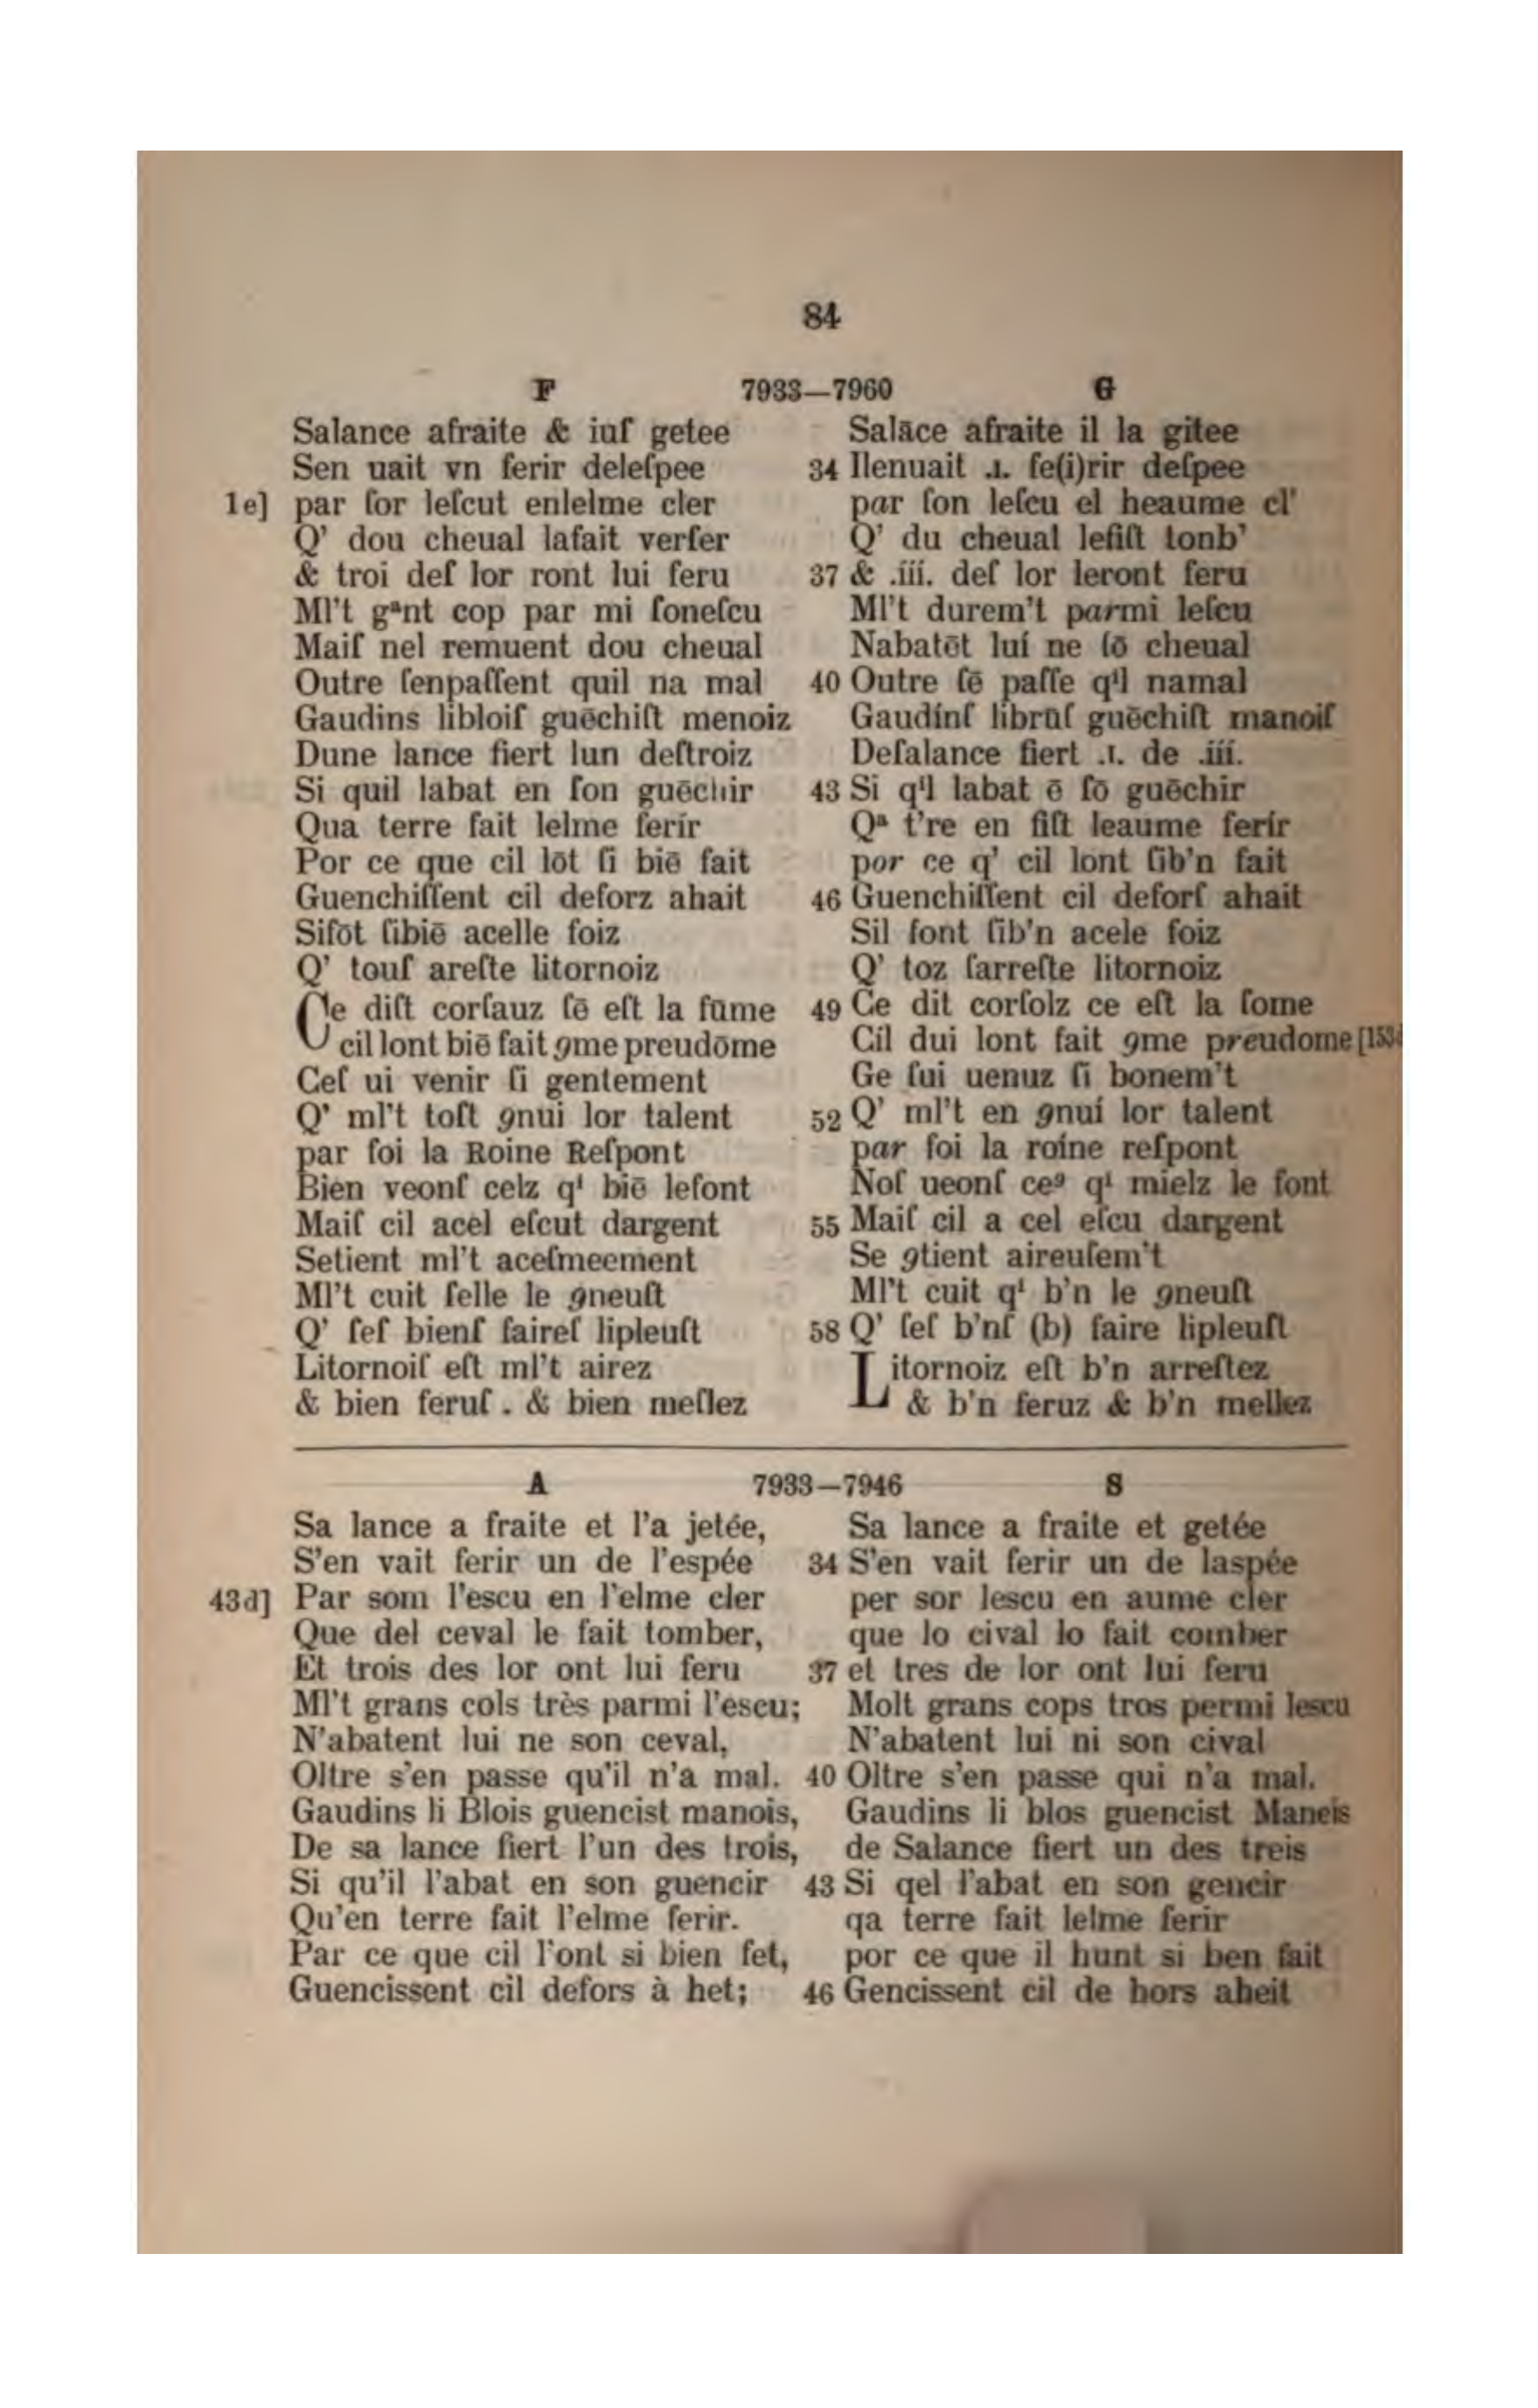 84
F 7933—7960 G
Salance afraite & iuſ getee
Sen uait vn ferir deleſpee
1e] par ſor leſcut enlelme cler
Q’ dou cheual lafait verſer
& troi deſ lor ront lui feru
Ml’t gᵃnt cop par mi ſoneſcu
Maiſ nel remuent dou cheual
Outre ſenpaſſent quil na mal
Gaudins libloiſ guēchiſt menoiz
Dune lance fiert lun deſtroiz
Si quil labat en ſon guēchir
Qua terre fait lelme ferir
Por ce que cil lōt ſi biē fait
Guenchiſſent cil deforz ahait
Sifōt ſibiē acelle foiz
Q’ touſ areſte litornoiz
Ce diſt corſauz ſē eſt la ſūme
cil lont biē fait ꝯme preudōme
Ceſ ui venir ſi gentement
Q’ ml’t toſt ꝯnui lor talent
par foi la Roine Reſpont
Bien veonſ celz qⁱ biē lefont
Maiſ cil acel eſcut dargent
Setient ml’t aceſmeement
Ml’t cuit ſelle le ꝯneuſt
Q’ ſeſ bienſ faireſ lipleuſt
Litornoiſ eſt ml’t airez
& bien feruſ . & bien meſlez
Salāce afraite il la gitee
34 Ilenuait .ı. fe(i)rir deſpee
par ſon leſcu el heaume cl’
Q’ du cheual lefiſt tonb’
37 & .iii. deſ lor leront feru
Ml’t durem’t parmi leſcu
Nabatēt lui ne ſō cheual
40 Outre ſē paſſe qⁱl namal
Gaudinſ librūſ guēchiſt manoiſ
Deſalance fiert .ı. de .iii.
43 Si qⁱl labat ē ſō guēchir
Qᵃ t’re en fiſt leaume ferir
por ce q’ cil lont ſib’n fait
46 Guenchiſſent cil deforſ ahait
Sil font ſib’n acele foiz
Q’ toz ſarreſte litornoiz
49 Ce dit corſolz ce eſt la ſome
Cil dui lont fait ꝯme preudome
Ge ſui uenuz ſi bonem’t
52 Q’ ml’t en ꝯnui lor talent
par foi la roine reſpont
Noſ ueonſ ceꝰ qⁱ mielz le font
55 Maiſ cil a cel eſcu dargent
Se ꝯtient aireuſem’t
Ml’t cuit qⁱ b’n le ꝯneuſt
58 Q’ ſeſ b’nſ (b) faire lipleuſt
Litornoiz eſt b’n arreſtez
& b’n feruz & b’n mellez
A 7933—7946 S
Sa lance a fraite et l’a jetée,
S’en vait ferir un de l’espée
43d] Par som l’escu en l’elme cler
Que del ceval le fait tomber,
Et trois des lor ont lui feru
Ml’t grans cols très parmi l’escu;
N’abatent lui ne son ceval,
Oltre s’en passe qu’il n’a mal.
Gaudins li Blois guencist manois,
De sa lance fiert l’un des trois,
Si qu’il l’abat en son guencir
Qu’en terre fait l’elme ferir.
Par ce que cil l’ont si bien fet,
Guencissent cil defors à het;
Sa lance a fraite et getée
34 S’en vait ferir un de laspée
per sor lescu en aume cler
que lo cival lo fait comber
37 et tres de lor ont lui feru
Molt grans cops tros permi lescu
N’abatent lui ni son cival
40 Oltre s’en passe qui n’a mal.
Gaudins li blos guencist Maneis
de Salance fiert un des treis
43 Si qel l’abat en son gencir
qa terre fait lelme ferir
por ce que il hunt si ben fait
46 Gencissent cil de hors aheit